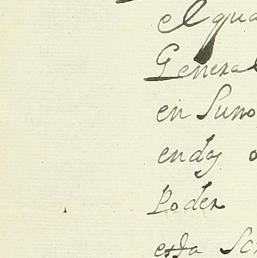 el qua
General
en Sumo
endos
Poder
esta Sc